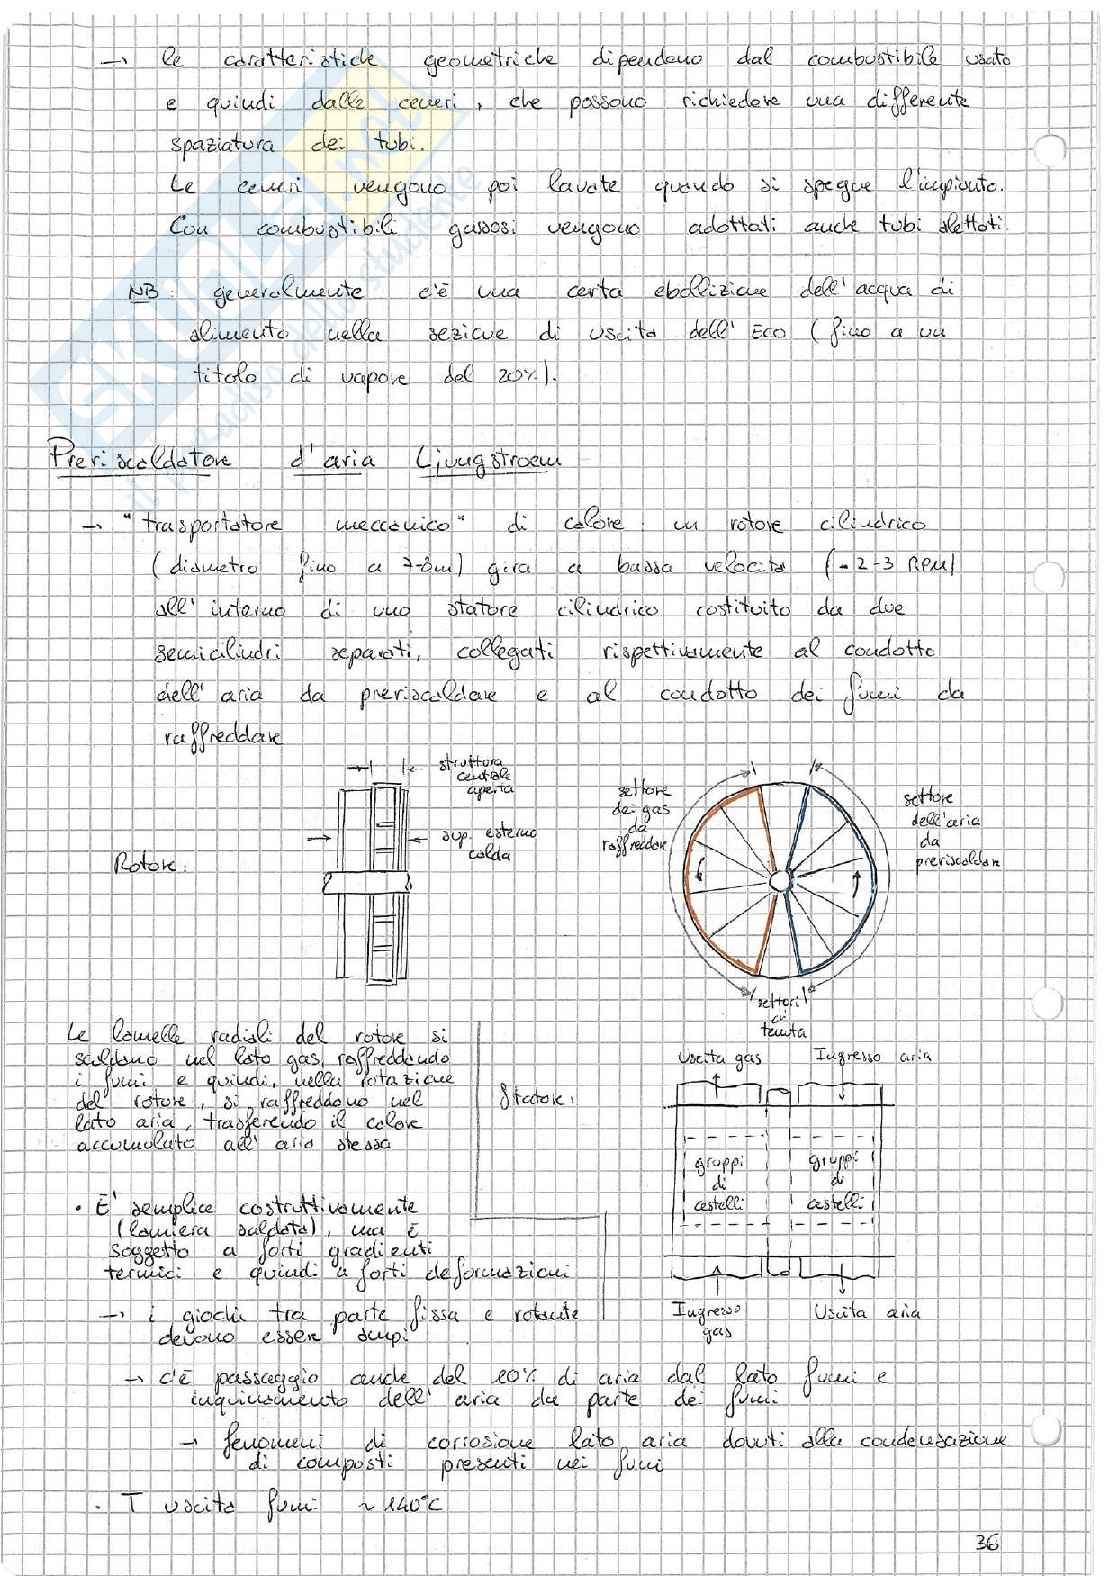 → le caratteristiche geometriche dipendono dal combustibile usato
e quindi dalle ceneri, che possono richiedere una differente
spaziatura dei tubi.
Le ceneri vengono poi lavate quando si spegne l'impianto.
Con combustibili gassosi vengono adottati anche tubi alettati.
NB: generalmente c'è una certa ebollizione dell'acqua di
alimento nella sezione di uscita dell'Eco (fino a un
titolo di vapore del 20%).
Preriscaldatore d'aria Ljungstroem
→ "trasportatore meccanico" di calore: un rotore cilindrico
(diametro fino a 7-8m) gira a bassa velocità (~2-3 RPM)
all'interno di uno statore cilindrico costituito da due
semicilindri separati, collegati rispettivamente al condotto
dell'aria da preriscaldare e al condotto dei fumi da
raffreddare
Rotore:
struttura
centrale
aperta
sup. esterna
calda
settore
dei gas
da
raffreddare
settore
dell'aria
da
preriscaldare
settori
di
tenuta
Le lamelle radiali del rotore si
scaldano nel lato gas, raffreddando
i fumi e quindi, nella rotazione
del rotore, si raffreddano nel
lato aria, trasferendo il calore
accumulato all'aria stessa
Statore:
Uscita gas Ingresso aria
gruppi
di
cestelli
gruppi
di
cestelli
Ingresso
gas
Uscita aria
• È semplice costruttivamente
(lamiera saldata), ma è
soggetto a forti gradienti
termici e quindi a forti deformazioni
→ i giochi tra parte fissa e rotante
devono essere ampi
→ c'è passaggio anche del 20% di aria dal lato fumi e
inquinamento dell'aria da parte dei fumi
→ fenomeni di corrosione lato aria dovuti alla condensazione
di composti presenti nei fumi
• T uscita fumi ~140°C
36